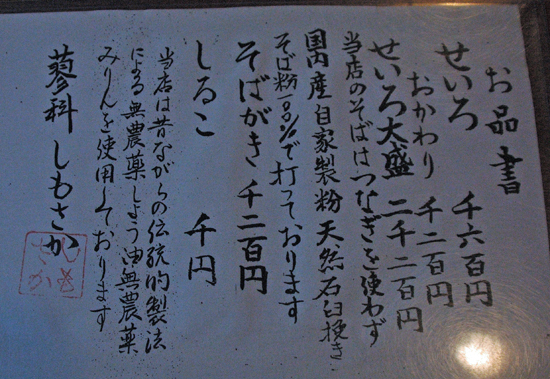 お品書
せいろ 千六百円
おかわり 千二百円
せいろ大盛 二千二百円
当店のそばはつなぎを使わず
国内産自家製粉天然石臼挽き
そば粉100%で打っております
そばがき 千二百円
しるこ 千円
当店は昔ながらの伝統的製法
による無農薬しょう油無農薬
みりんを使用しております
蓼科しもさか
しも
さか